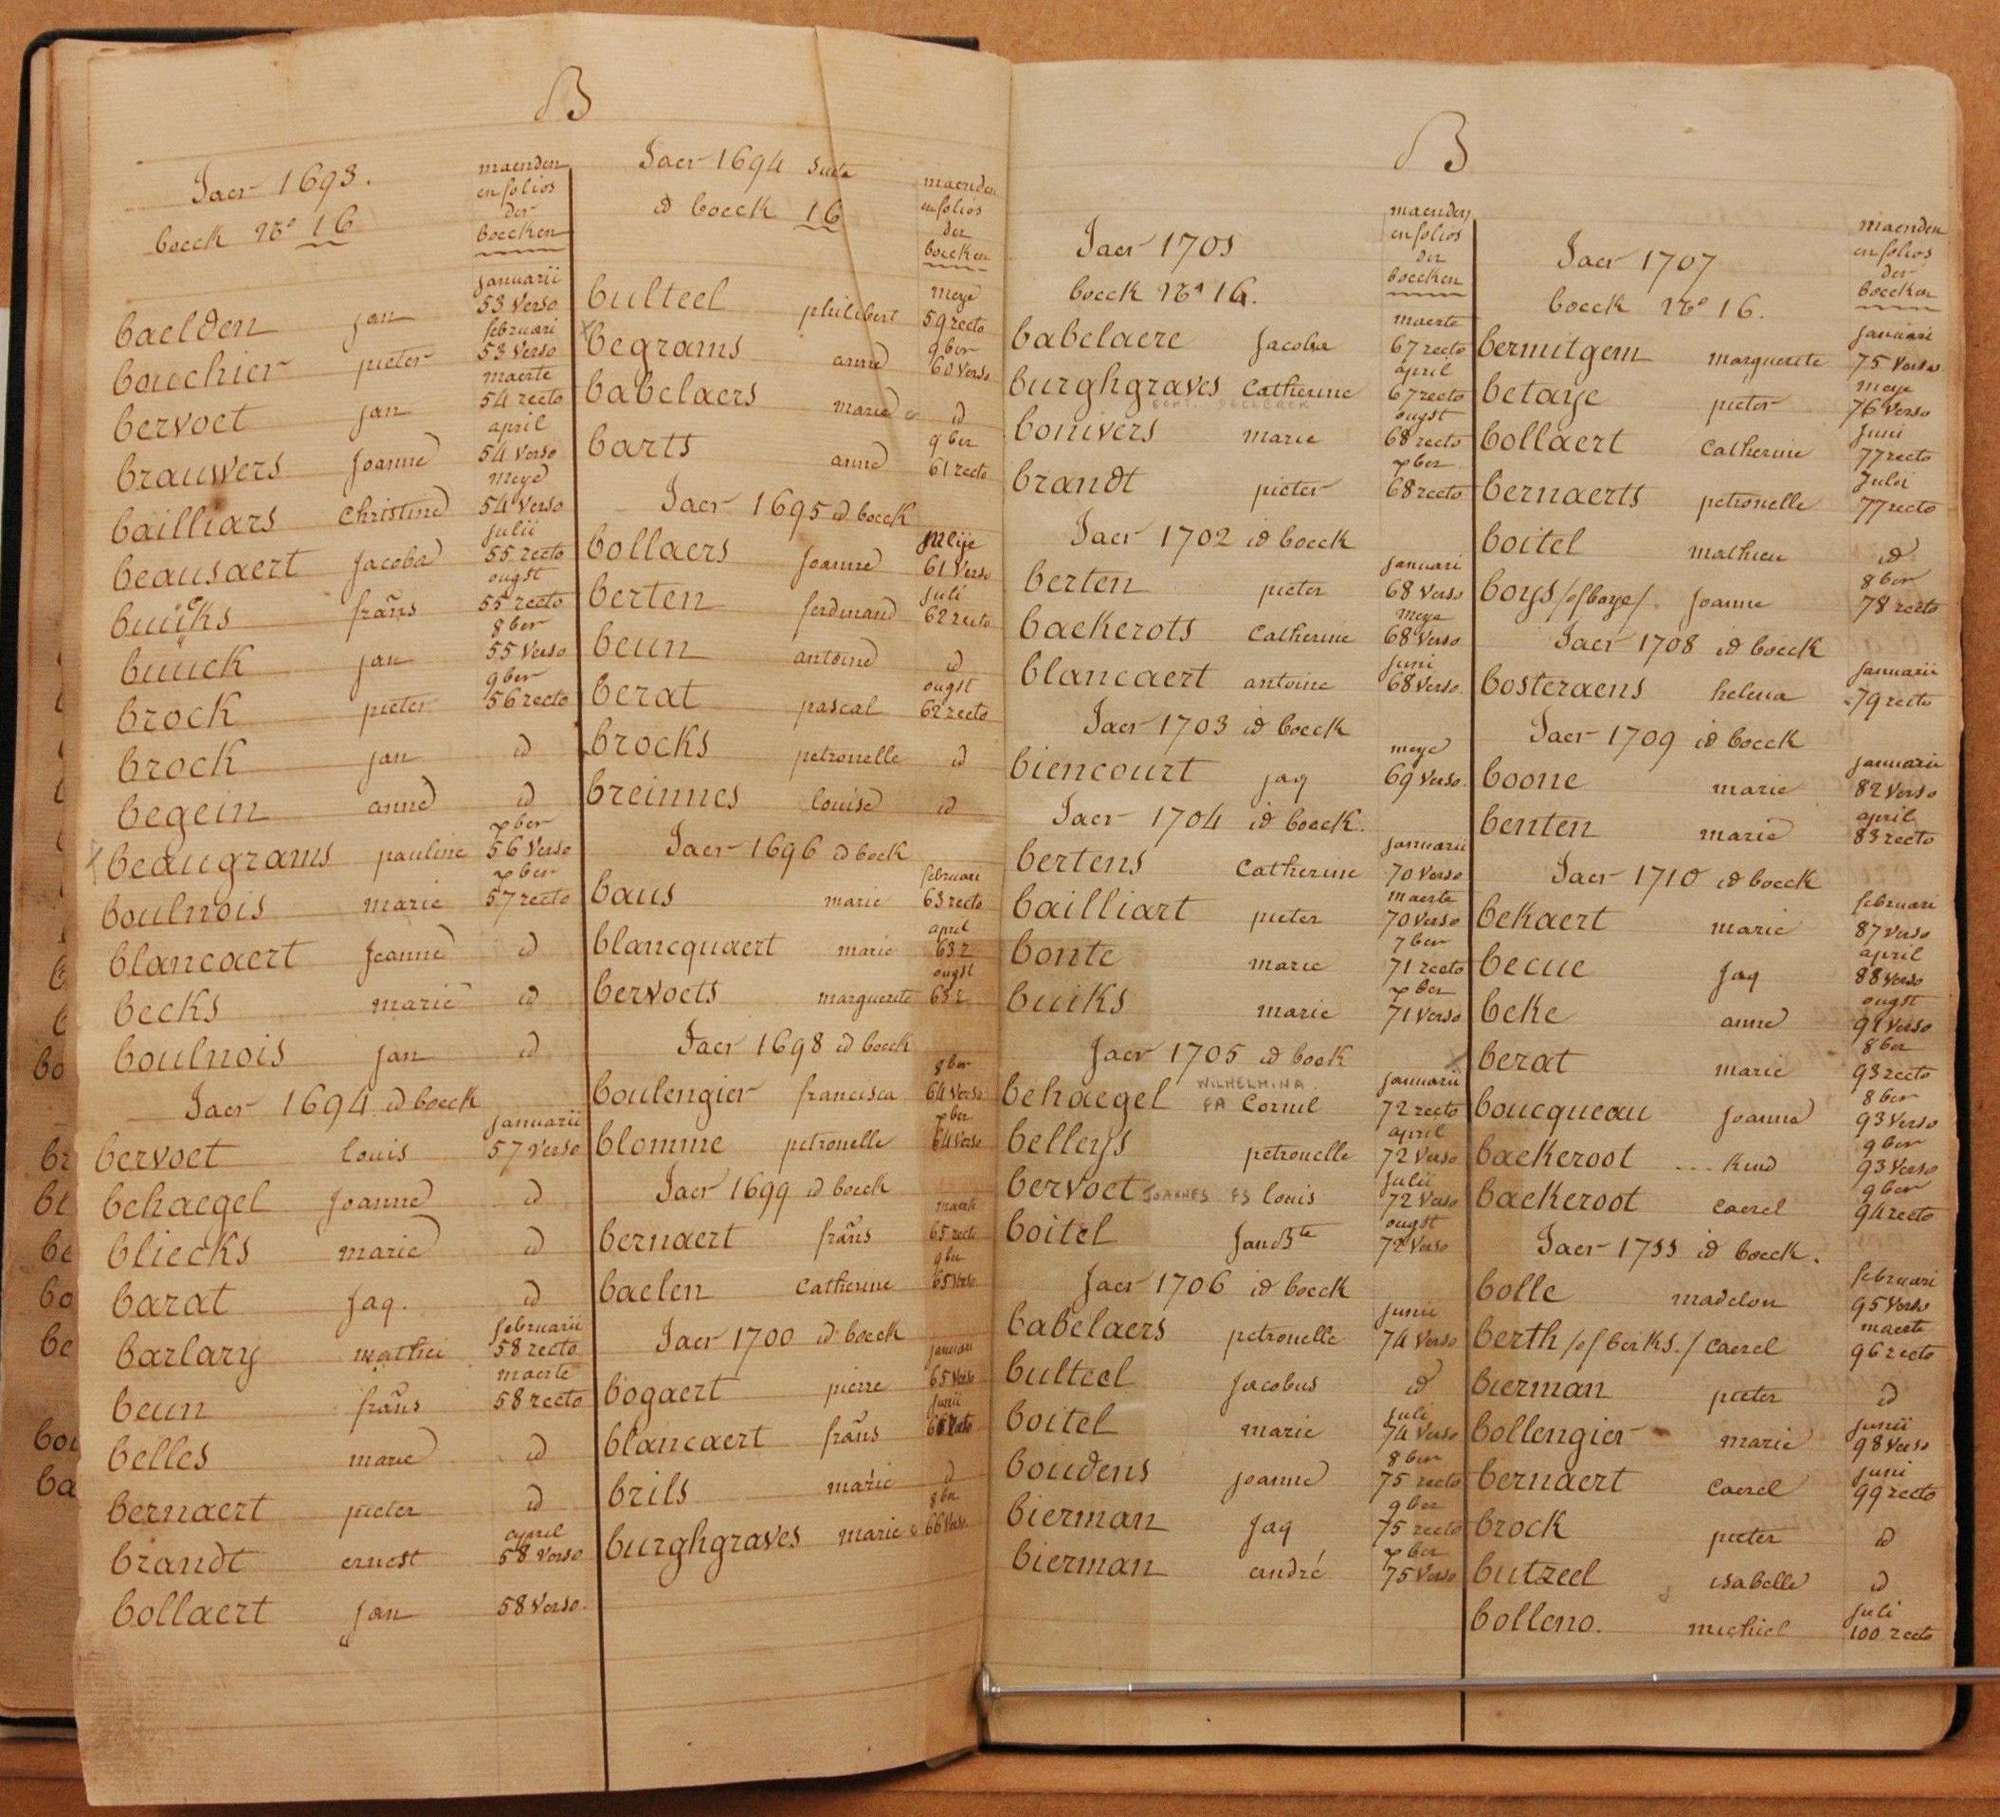 B
Jaer 1693.
boeck No 16
maenden
en folios
der
boecken
januarii
baelden jan 53 verso
februari
bouchier pieter 53 verso
maerte
bervoet jan 54 recto
april
brauwers joanne 54 verso
meye
bailliars christine 54 verso
julii
beausaert jacoba 55 recto
ougst
buucks frans 55 recto
8ber
buuck jan 55 verso
9ber
brock pieter 56 recto
brock jan id
begein anne id
xber
x beaugrams pauline 56 verso
xber
boulnois marie 57 recto
blancaert jeanne id
becks marie id
boulnois jan id
Jaer 1694 id boeck
januarii
bervoet louis 57 verso
behaegel joanne id
bliecks marie id
barat jaq. id
februarii
barlary mathei 58 recto
maerte
beun frans 58 recto
belles marie id
bernaert pieter id
april
brandt ernest 58 verso
bollaert jan 58 verso.
Jaer 1694 suite
id boeck 16
maenden
en folios
der
boecken
meye
bulteel philibert 59 recto
9ber
x begrams anne 60 verso
babelaers marie id
9ber
barts anne 61 recto
Jaer 1695 id boeck
meije
bollaers joanne 61 verso
juli
berten ferdinand 62 recto
beun antoine id
ougst
berat pascal 62 recto
brocks petronelle id
breinnes louise id
Jaer 1696 id boek
februari
baus marie 63 recto
april
blancquaert marie 63 r
ougst
bervoets marguerite 63 r
Jaer 1698 id boeck
8ber
boulengier francisca 64 verso
xber
blomme petronelle 64 verso
Jaer 1699 id boeck
maerte
bernaert frans 65 recto
9ber
baelen catherine 65 verso
Jaer 1700 id boeck
januari
bogaert pierre 65 verso
junii
blancaert frans 66 recto
brils marie id
8ber
burghgraves marie 66 verso
B
Jaer 1701
boeck No 16.
maenden
en folios
der
boecken
maerte
babelaere jacoba 67 recto
april
burghgraves catherine 67 recto
ougst
bonivers marie 68 recto
xber
brandt pieter 68 recto
Jaer 1702 id boeck
januari
berten pieter 68 verso
meye
baekerots catherine 68 verso
juni
blancaert antoine 68 verso.
Jaer 1703 id boeck
meye
biencourt jaq 69 verso.
Jaer 1704 id boeck.
januarii
bertens catherine 70 verso
maerte
bailliart pieter 70 verso
7ber
bonte marie 71 recto
xber
buiks marie 71 verso
Jaer 1705 id boek
WILHELMINA januarii
behaegel FA Cornil 72 recto
april
belleys petronelle 72 verso
julii
bervoet JOANNES FS louis 72 verso
ougst
boitel jan Bte 72 verso
Jaer 1706 id boeck
junii
babelaers petronelle 74 verso
bulteel jacobus id
juli
boitel marie 74 verso
8ber
boudens joanne 75 recto
9ber
bierman jaq 75 recto
xber
bierman andré 75 verso
Jaer 1707
boeck No 16.
maenden
en folios
der
boecken
januari
bermitgem marguerite 75 verso
meye
betaye pieter 76 verso
juni
bollaert catherine 77 recto
juloi
bernaerts petronelle 77 recto
boitel mathieu id
8ber
boys /of baye/. joanne 78 recto
Jaer 1708 id boeck
januarii
bosteraens helena 79 recto
Jaer 1709 id boeck
januarii
boone marie 82 verso
april
benten marie 83 recto
Jaer 1710 id boeck
februari
bekaert marie 87 verso
april
becue jaq 88 verso
ougst
beke anne 91 verso
8ber
x berat marie 93 recto
8ber
boucqueau joanna 93 verso
9ber
baekeroot ... kind 93 verso
9ber
baekeroot caerel 94 recto
Jaer 1711 id boeck.
februari
bolle madelon 95 verso
maerte
berth /of berks./ caerel 96 recto
bierman pieter id
junii
bollengier marie 98 verso
juni
bernaert caerel 99 recto
brock pieter id
butzeel isabelle id
juli
bolleno. michiel 100 recto